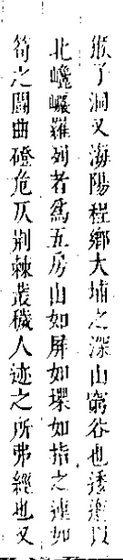 猴子洞又海陽程鄉大埔之深山窮谷也透迤以
北巉巗羅列者爲五房山如屏如環如指之連如
筍之鬬曲磴危仄荆棘叢穢人迹之所弗經也又